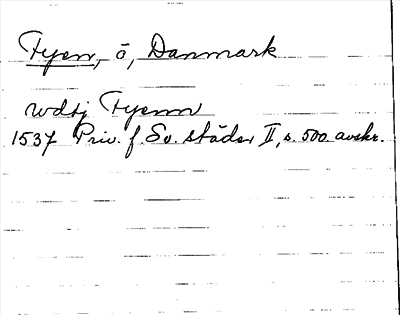 Fyen, ö, Danmark
wdtj Fyenn
1537 Priv. f. Sv. städer II, s. 500 avskr.